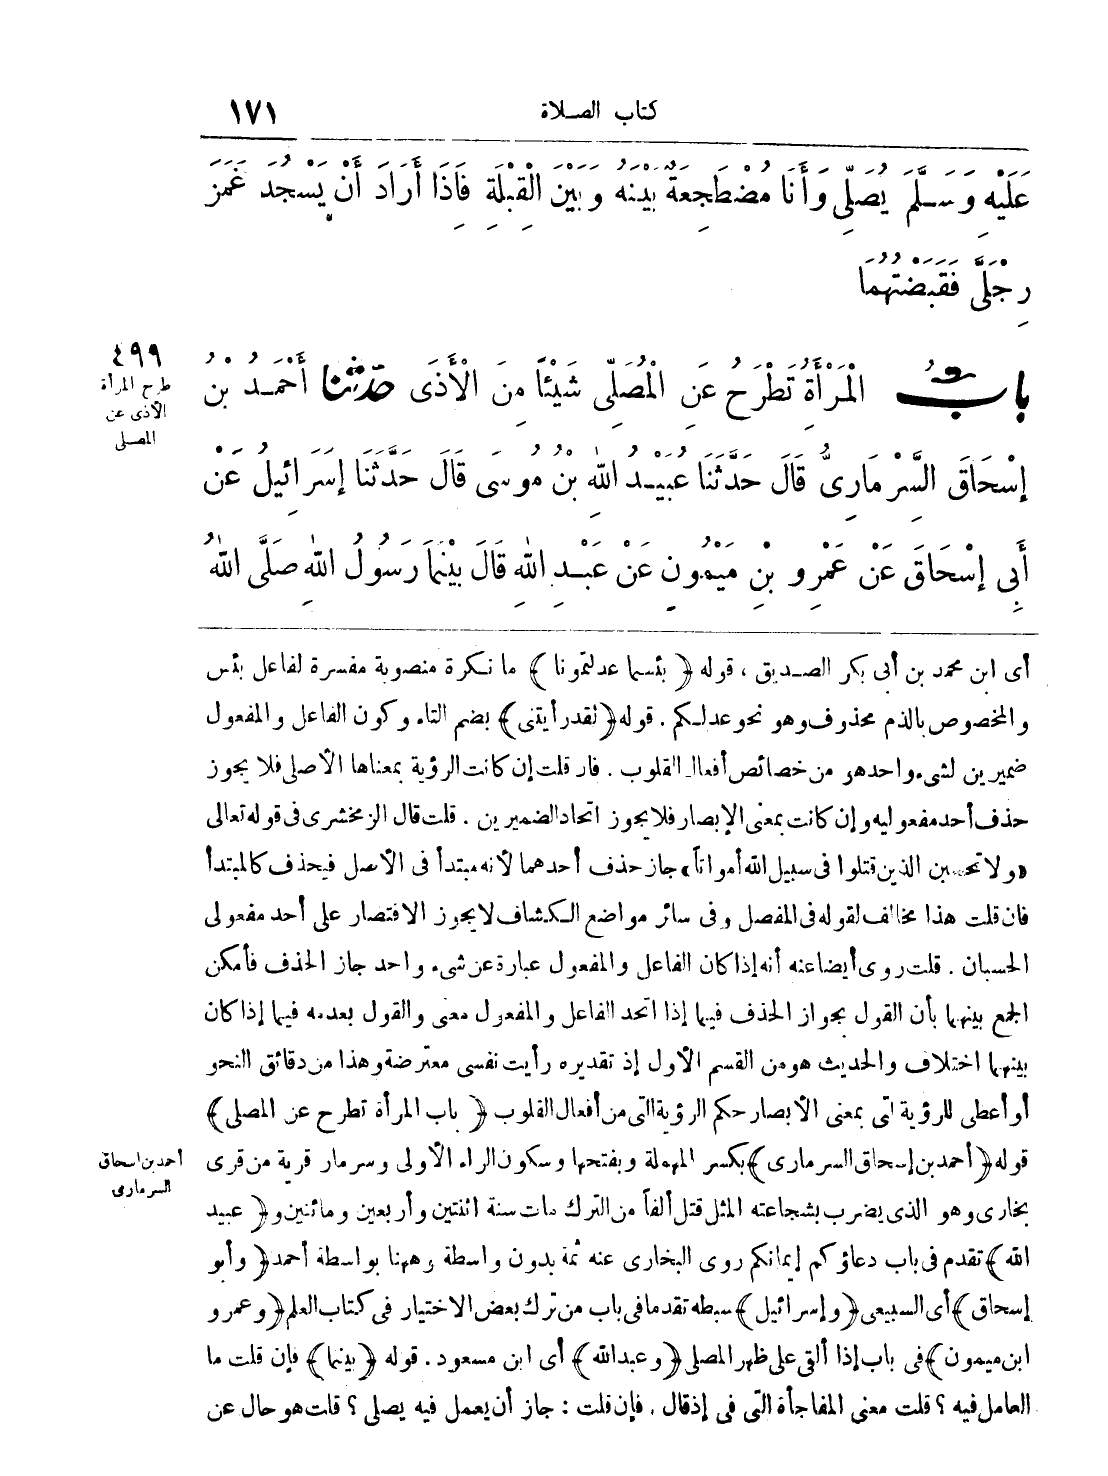 كتاب الصلاة ١٧١
عَلَيْهِ وَسَلَّمَ يُصَلِّي وَأَنَا مُضْطَجِعَةٌ بَيْنَهُ وَبَيْنَ الْقِبْلَةِ فَإِذَا أَرَادَ أَنْ يَسْجُدَ غَمَزَ
رِجْلَيَّ فَقَبَضْتُهُمَا
٤٩٩
طرح المرأة
الأذى عن
المصلى
بابُ الْمَرْأَةُ تَطْرَحُ عَنِ الْمُصَلِّى شَيْئًا مِنَ الْأَذَى حدثنا أَحْمَدُ بْنُ
إِسْحَاقَ السِّرْمَارِىُّ قَالَ حَدَّثَنَا عُبَيْدُ اللهِ بْنُ مُوسَى قَالَ حَدَّثَنَا إِسْرَائِيلُ عَنْ
أَبِى إِسْحَاقَ عَنْ عَمْرِو بْنِ مَيْمُونٍ عَنْ عَبْدِ اللهِ قَالَ بَيْنَمَا رَسُولُ اللهِ صَلَّى اللهُ
أى ابن محمد بن أبى بكر الصديق ، قوله ﴿ بئسما عدلتمونا ﴾ ما نكرة منصوبة مفسرة لفاعل بئس
والمخصوص بالذم محذوف وهو نحو عدلكم . قوله ﴿ لقد رأيتنى ﴾ بضم التاء وكون الفاعل والمفعول
ضميرين لشىء واحد هو من خصائص أفعال القلوب . فان قلت إن كانت الرؤية بمعناها الأصلى فلا يجوز
حذف أحد مفعوليه وإن كانت بمعنى الإبصار فلا يجوز اتحاد الضميرين . قلت قال الزمخشرى فى قوله تعالى
«ولا تحسبن الذين قتلوا فى سبيل الله أمواتاً» جاز حذف أحدهما لأنه مبتدأ فى الأصل فيحذف كالمبتدأ
فان قلت هذا مخالف لقوله فى المفصل وفى سائر مواضع الكشاف لا يجوز الاقتصار على أحد مفعولى
الحسبان . قلت روى أيضا عنه أنه إذا كان الفاعل والمفعول عبارة عن شىء واحد جاز الحذف فأمكن
الجمع بينهما بأن القول بجواز الحذف فيما إذا اتحد الفاعل والمفعول معنى والقول بعدمه فيما إذا كان
بينهما اختلاف والحديث هو من القسم الأول إذ تقديره رأيت نفسى معترضة وهذا من دقائق النحو
أو أعطى للرؤية التى بمعنى الأبصار حكم الرؤية التى من أفعال القلوب ﴿ باب المرأة تطرح عن المصلى ﴾
قوله ﴿ أحمد بن إسحاق السرمارى ﴾ بكسر المهملة وبفتحها وسكون الراء الأولى وسرمار قرية من قرى
أحمد بن اسحاق
السرمارى
بخارى وهو الذى يضرب بشجاعته المثل قتل ألفاً من الترك مات سنة اثنتين وأربعين ومائتين و﴿ عبيد
الله ﴾ تقدم فى باب دعاؤكم إيمانكم روى البخارى عنه ثمة بدون واسطة وههنا بواسطة أحمد ﴿ وأبو
إسحاق ﴾ أى السبيعى ﴿ وإسرائيل ﴾ سبطه تقدما فى باب من ترك بعض الاختيار فى كتاب العلم ﴿ وعمرو
ابن ميمون ﴾ فى باب إذا ألقى على ظهر المصلى ﴿ وعبدالله ﴾ أى ابن مسعود . قوله ﴿ بينما ﴾ فإن قلت ما
العامل فيه ؟ قلت معنى المفاجأة التى فى إذ قال . فإن قلت : جاز أن يعمل فيه يصلى ؟ قلت هو حال عن